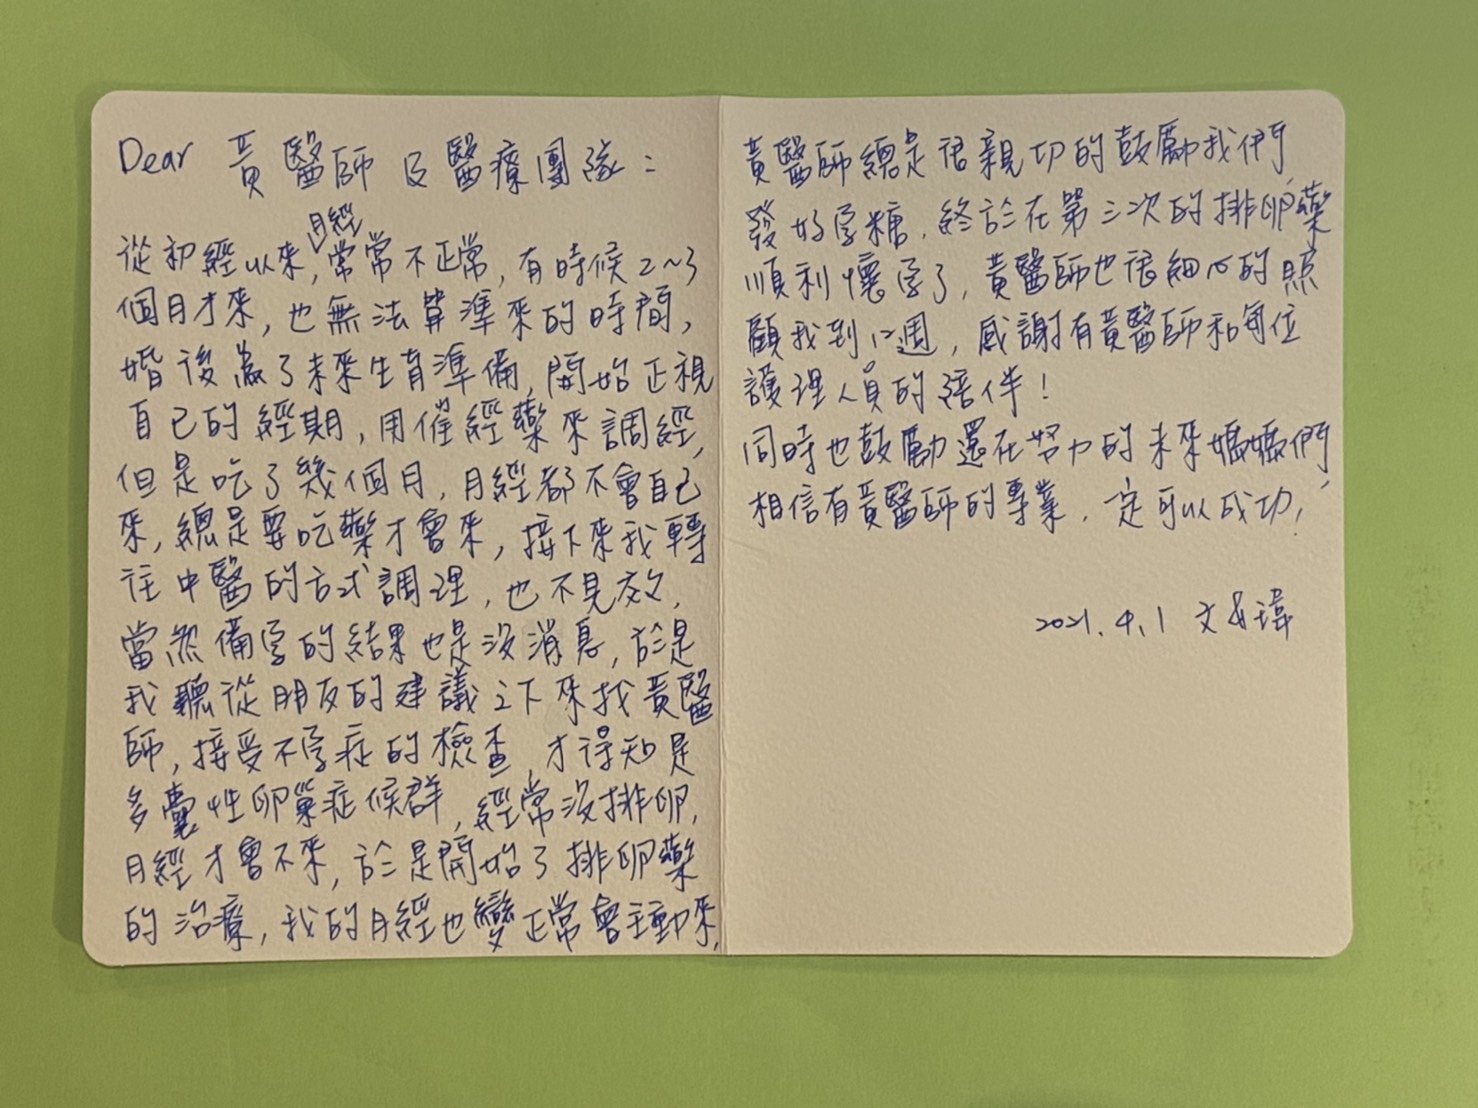 Dear 黃醫師 及醫療團隊：
從初經以來，月經常常不正常，有時候2~3
個月才來，也無法算準來的時間，
婚後為了未來生育準備，開始正視
自己的經期，用催經藥來調經，
但是吃了幾個月，月經都不會自己
來，總是要吃藥才會來，接下來我轉
往中醫的方式調理，也不見效，
當然備孕的結果也是沒消息，於是
我聽從朋友的建議之下來找黃醫
師，接受不孕症的檢查，才得知是
多囊性卵巢症候群，經常沒排卵，
月經才會不來，於是開始了排卵藥
的治療，我的月經也變正常會主動來，
黃醫師總是很親切的鼓勵我們，
發好孕糖，終於在第三次的排卵藥
順利懷孕了，黃醫師也很細心的照
顧我到12週，感謝有黃醫師和每位
護理人員的陪伴！
同時也鼓勵還在努力的未來媽媽們，
相信有黃醫師的專業，一定可以成功！
2021.4.1 文&瑋